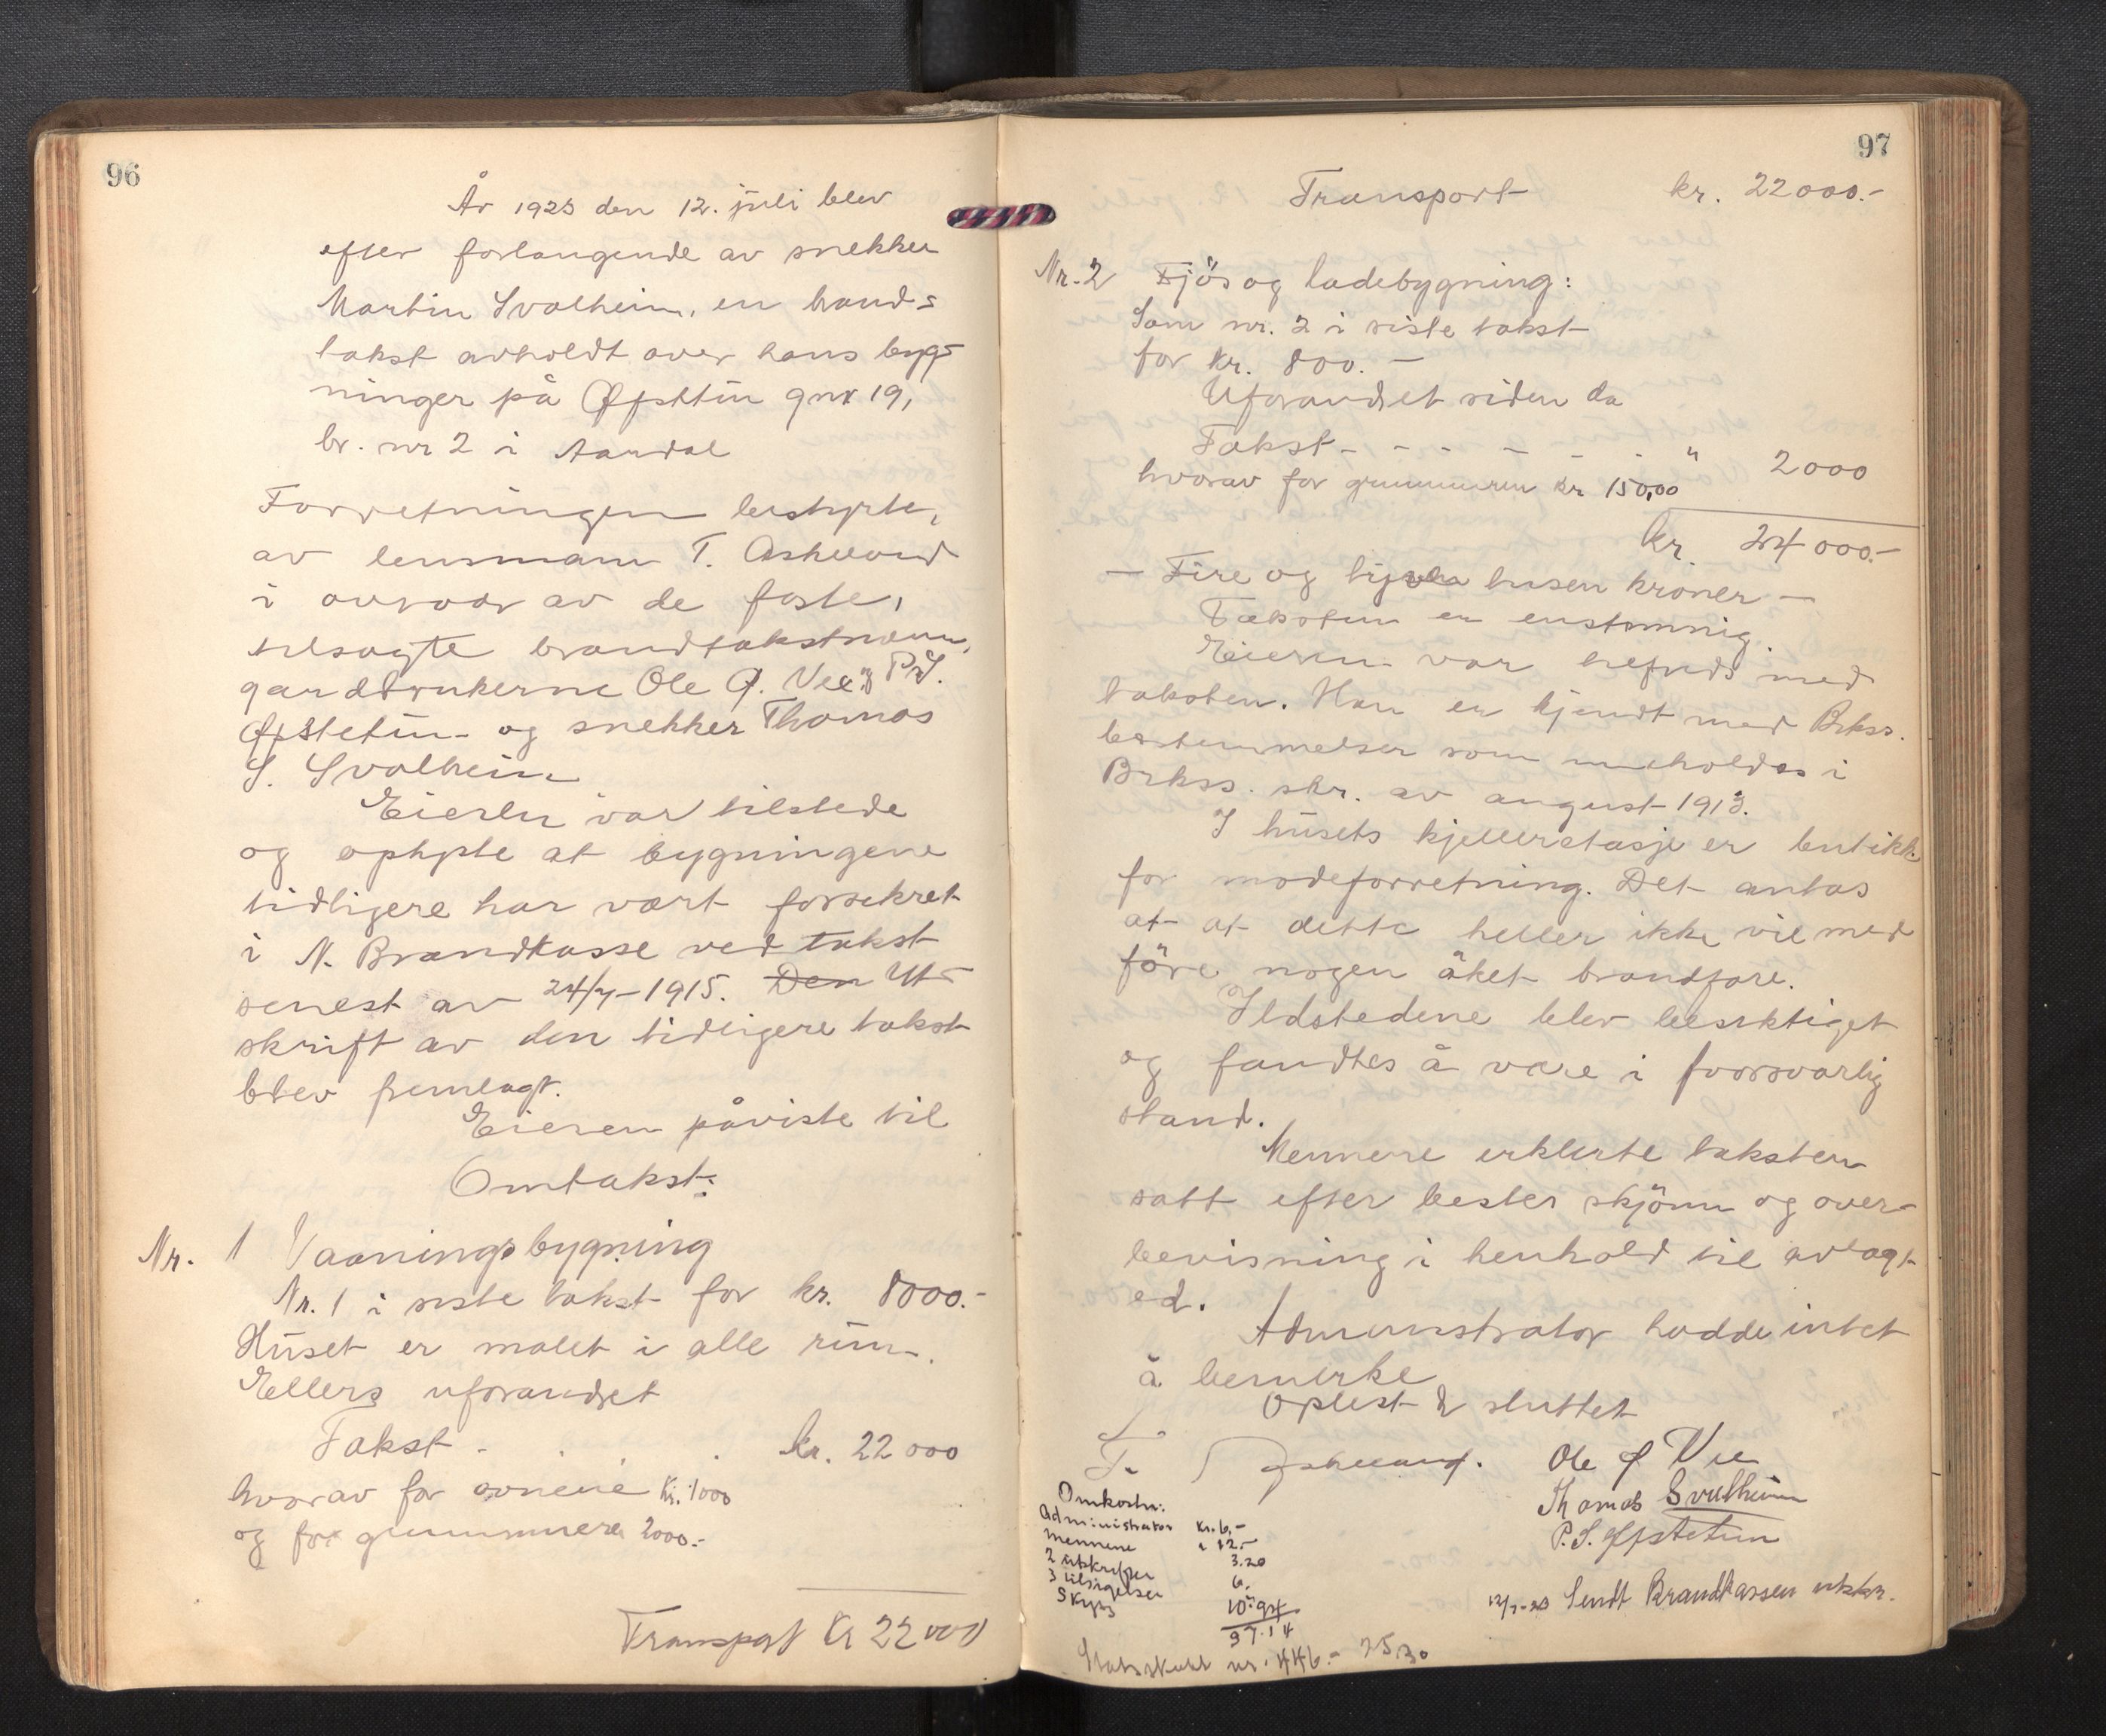 96
År 1923 den 12. juli blev
efter forlangende av snekker
Martin Svalheim, en brand-
takst avholdt over hans byg-
ninger på Øpstetun gnr 19,
br. nr 2 i Aardal
Forretningen bestyrtes
av lensmann T. Askeland
i overvær av de faste,
tilsagte brandtakstmenn,
gardbrukerne Ole O. Vee, P. S.
Øpstetun og snekker Thomas
S. Svalheim
Eieren var tilstede
og oplyste at bygningene
tidligere har vært forsekret
i N. Brandkasse ved takst
senest av 24/7-1915. Den Ut-
skrift av den tidligere takst
blev fremlagt.
Eieren påviste til
Omtakst:
Nr. 1 Vaaningsbygning
Nr. 1 i siste takst for kr. 8000.-
Huset er malet i alle rum.
Ellers uforandret
Takst - . . kr. 22 000
hvorav for ovnene Kr. 1000
og for grunnmuren 2000.-
Transport Kr 22 000
97
Transport kr. 22000.-
Nr. 2 Fjös og ladebygning:
Som nr. 2 i siste takst
for kr. 800.-
Uforandret siden da
Takst - - - - - - " 2000
hvorav for grunnmuren kr 150,00
kr 24 000.-
- Fire og tyve tusen kroner -
Taksten er enstemmig.
Eieren var tilfreds med
taksten. Han er kjendt med Brkss.
bestemmelser som inneholdes i
Brkss. skr. av august 1913.
I husets kjelleretasje er butikk
for modeforretning. Det antas
at at dette heller ikke vil med
före nogen öket brandfare.
Ildstedene blev besiktiget
og fandtes å være i forsvarlig
stand.
Mennene erklærte taksten
satt efter beste skjönn og over-
bevisning i henhold til avlagt
ed.
Administrator hadde intet
å bemerke
Oplest & sluttet
T. Askeland. Ole O Vee
Thomas Svalheim
P. S. Øpstetun
Omkostn:
Administrator kr. 6,-
Mennene " 12.-
2 utskrifter 3.20
3 tilsigelser 6.
Skyss 10.94
37.14
12/7-23 Sendt Brandkassen utskr.
nr. 446.- 25.30